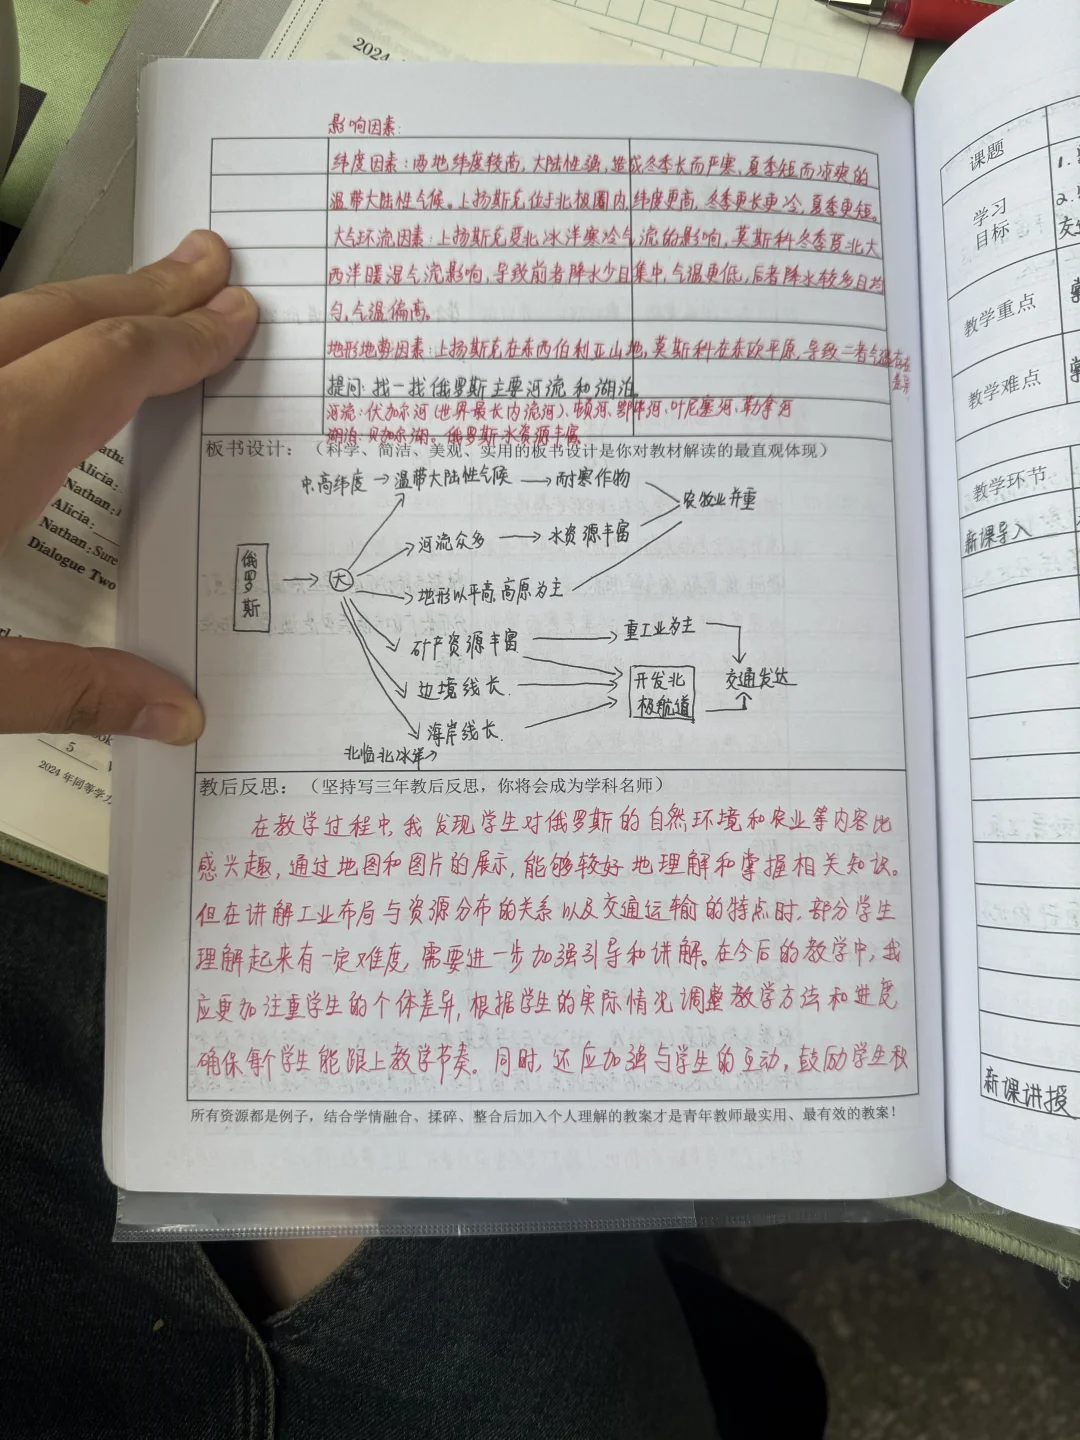 2024
影响因素:
纬度因素:两地纬度较高,大陆性强,造成冬季长而严寒,夏季短而凉爽的
温带大陆性气候。上扬斯克位于北极圈内,纬度更高,冬季更长更冷,夏季更短。
大气环流因素:上扬斯克受北冰洋寒冷气流的影响,莫斯科冬季受北大
西洋暖湿气流影响,导致前者降水少且集中,气温更低,后者降水较多且均
匀,气温偏高。
地形地势因素:上扬斯克在东西伯利亚山地,莫斯科在东欧平原,导致二者气温存在
差异
提问:找一找俄罗斯主要河流和湖泊
河流:伏加尔河(世界最长内流河)、顿河、鄂毕河、叶尼塞河、勒拿河
湖泊:贝加尔湖。俄罗斯水资源丰富
板书设计:(科学、简洁、美观、实用的板书设计是你对教材解读的最直观体现)
中,高纬度→温带大陆性气候→耐寒作物
农牧业并重
河流众多→水资源丰富
俄罗斯→大
地形以平高,高原为主
矿产资源丰富→重工业为主
边境线长.
开发北
极航道
交通发达
海岸线长.
北临北冰洋
教后反思:(坚持写三年教后反思,你将会成为学科名师)
在教学过程中,我发现学生对俄罗斯的自然环境和农业等内容比
感兴趣,通过地图和图片的展示,能够较好地理解和掌握相关知识。
但在讲解工业布局与资源分布的关系以及交通运输的特点时,部分学生
理解起来有一定难度,需要进一步加强引导和讲解。在今后的教学中,我
应更加注重学生的个体差异,根据学生的实际情况调整教学方法和进度
确保每个学生能跟上教学节奏。同时,还应加强与学生的互动,鼓励学生积
所有资源都是例子,结合学情融合、揉碎、整合后加入个人理解的教案才是青年教师最实用、最有效的教案!
Alicia:
Nathan:
Alicia:
Nathan: Sure
Dialogue Two
5
2024年同等学力
课题
1.
学习
目标
2.
教学重点
教学难点
教学环节
新课导入
新课讲授